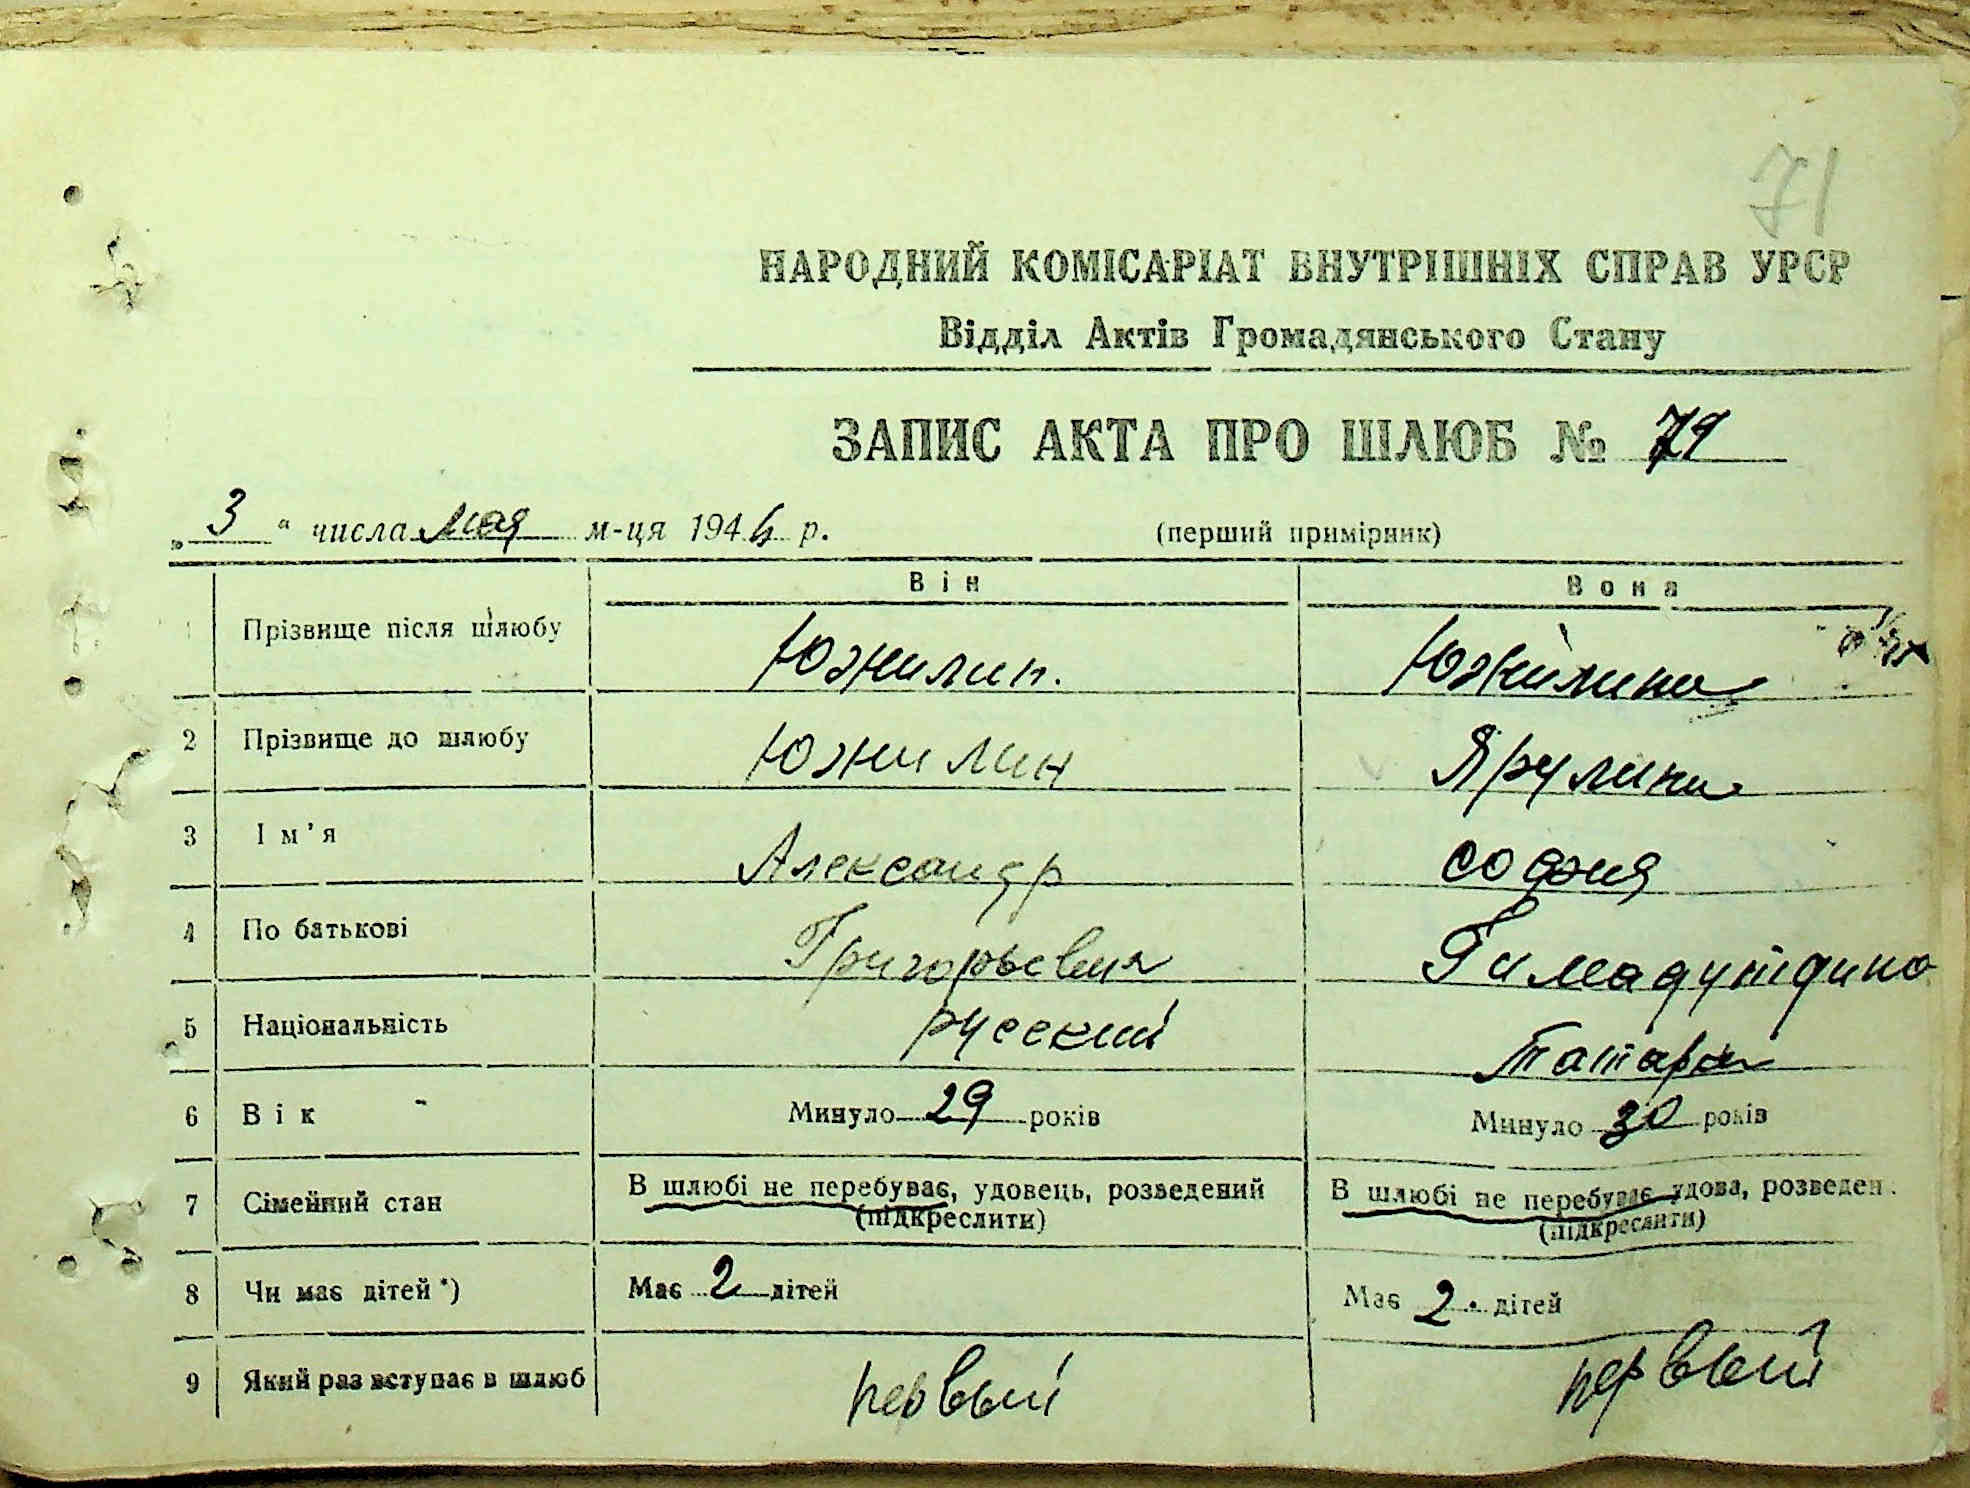 71
НАРОДНИЙ КОМІСАРІАТ ВНУТРІШНІХ СПРАВ УРСР
Відділ Актів Громадянського Стану
ЗАПИС АКТА ПРО ШЛЮБ № 79
„ 3 " числа мая м-ця 1944 р. (перший примірник)
Він Вона
1 Прізвище після шлюбу Южилин. Южилина
2 Прізвище до шлюбу Южилин Ярулина
3 Ім'я Александр София
4 По батькові Григорьевич Гимадутдино
5 Національність русский Татарка
6 Вік Минуло 29 років Минуло 30 років
7 Сімейний стан В шлюбі не перебуває, удовець, розведений (підкреслити) В шлюбі не перебуває, удова, розведен. (підкреслити)
8 Чи має дітей *) Має 2 дітей Має 2. дітей
9 Який раз вступає в шлюб первый первый